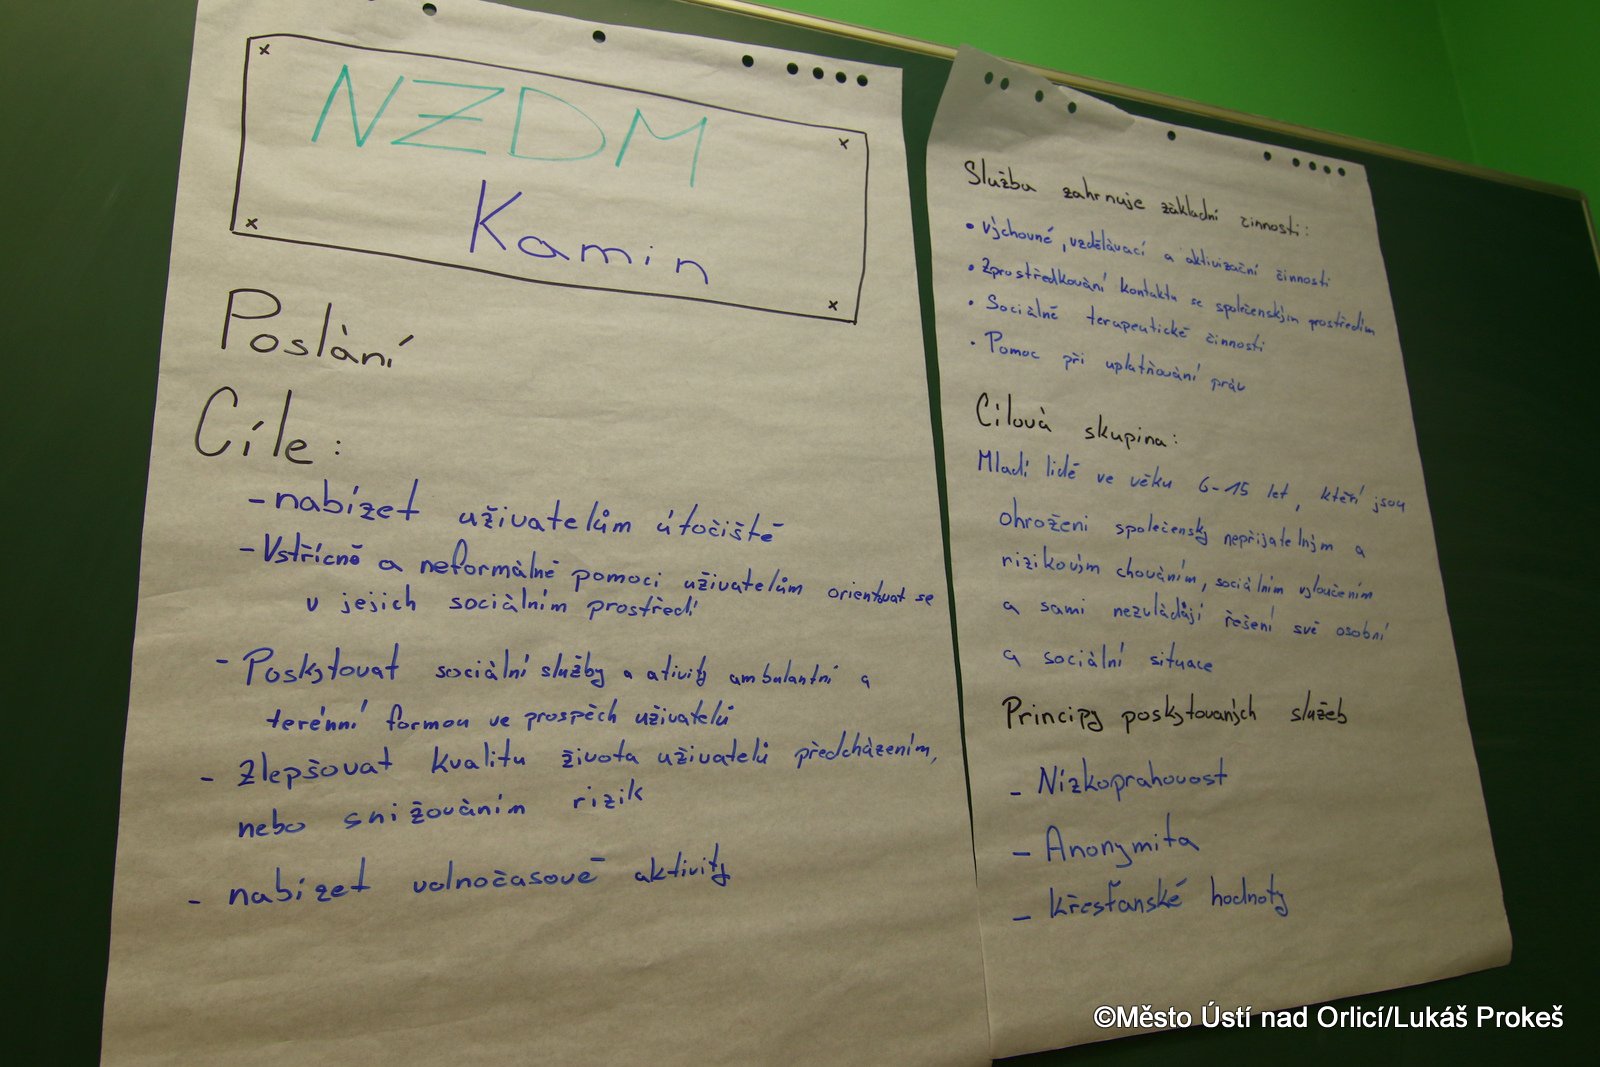 NZDM
Kamin
Poslání
Cíle:
- nabízet uživatelům útočiště
- Vstřícně a neformálně pomoci uživatelům orientovat se
v jejich sociálním prostředí
- Poskytovat sociální služby a ativity ambulantní a
terénní formou ve prospěch uživatelů
- Zlepšovat kvalitu života uživatelů předcházením,
nebo snižováním rizik
- nabízet volnočasové aktivity
Služba zahrnuje základní činnosti:
• Výchovné, vzdělávací a aktivizační činnosti
• Zprostředkování kontaktu se společenským prostředím
• Sociálně terapeutické činnosti
• Pomoc při uplatňování práv
Cílová skupina:
Mladí lidé ve věku 6-15 let, kteří jsou
ohroženi společensky nepřijatelným a
rizikovým chováním, sociálním vyloučením
a sami nezvládají řešení své osobní
a sociální situace
Principy poskytovaných služeb
- Nízkoprahovost
- Anonymita
- Křesťanské hodnoty
©Město Ústí nad Orlicí/Lukáš Prokeš